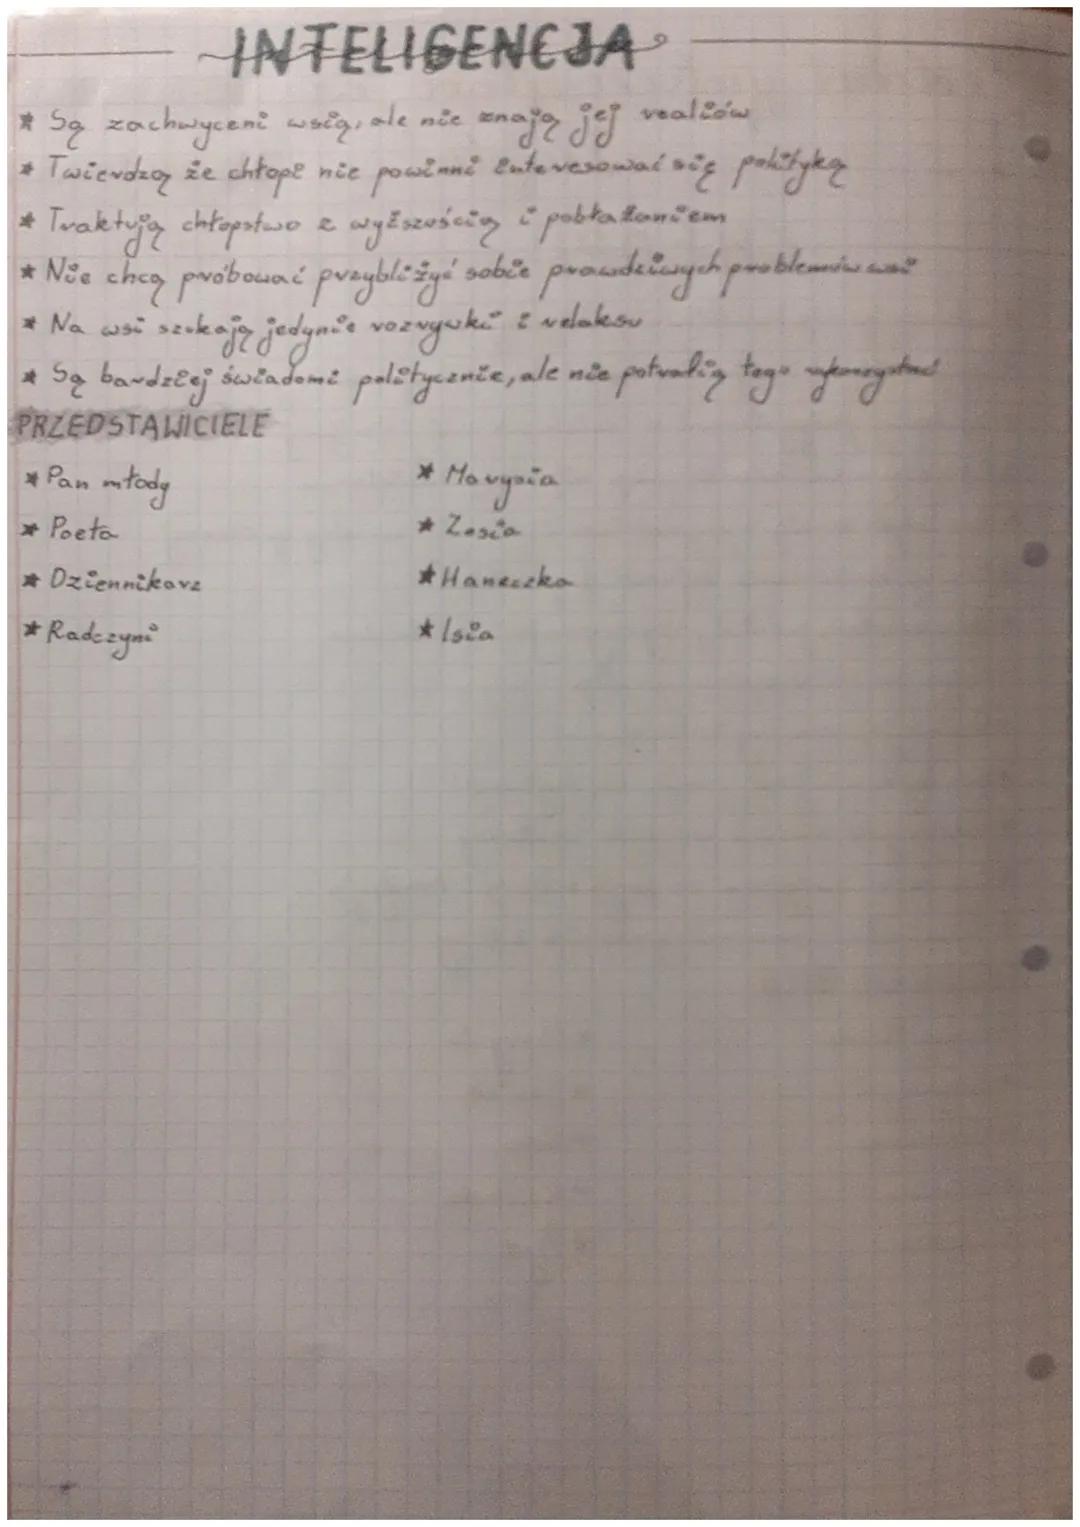 INTELIGENCJA
* Są zachwyceni wsią, ale nie znają jej realiów
* Twierdzą że chłopi nie powinni interesować się polityką
* Traktują chłopstwo z wyższością i pobłażaniem
* Nie chcą próbować przybliżyć sobie prawdziwych problemów wsi
* Na wsi szukają jedynie rozrywki i relaksu
* Są bardziej świadomi politycznie, ale nie potrafią tego wykorzystać
PRZEDSTAWICIELE
* Pan młody
* Poeta
* Dziennikarz
* Radczyni
* Marysia
* Zosia
* Haneczka
* Isia